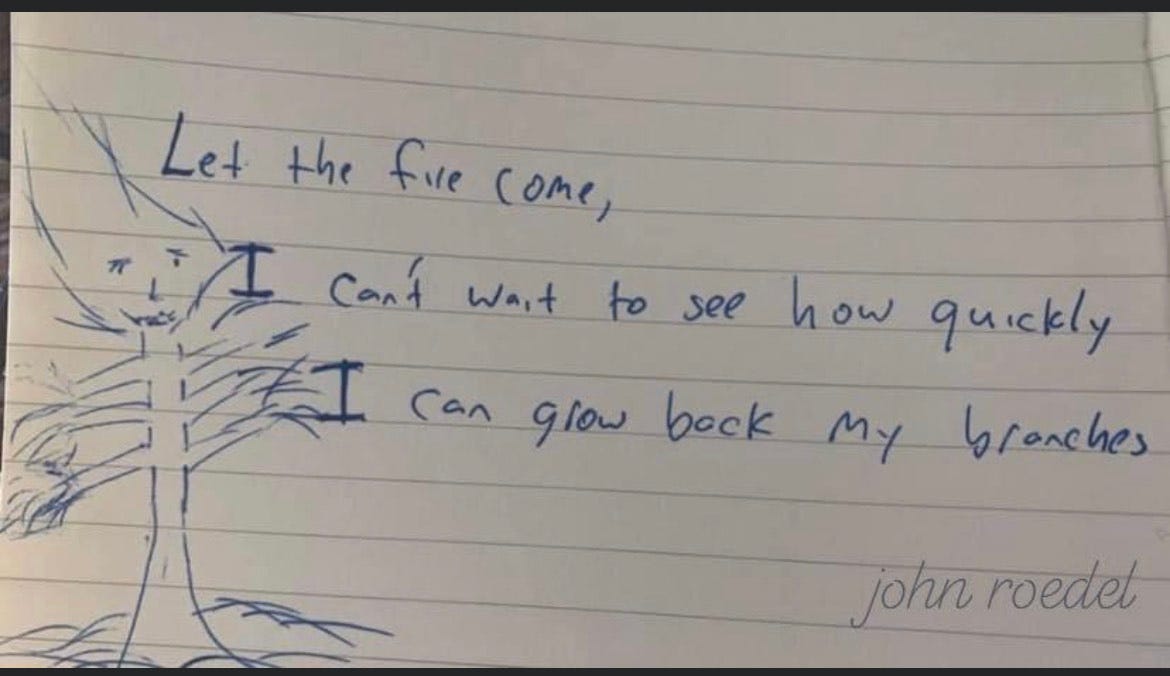 Let the fire come,
I can't wait to see how quickly
I can grow back my branches
john roedel